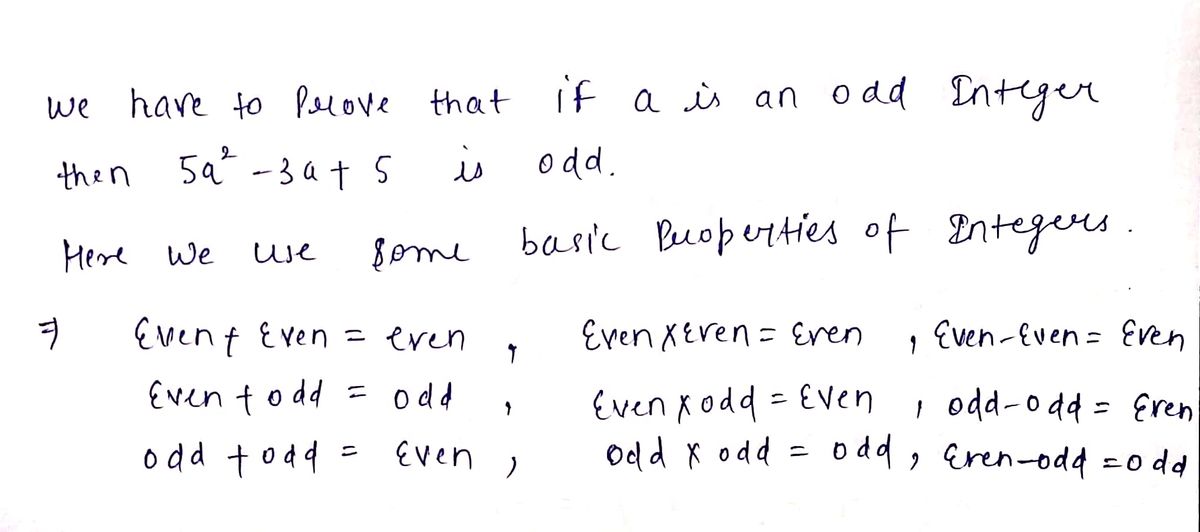 we have to Prove that if a is an odd Integer
then 5a² - 3a + 5 is odd.
Here we use some basic Properties of Integers.
⇒ Even + Even = even , Even x Even = Even , Even - Even = Even
Even + odd = odd , Even x odd = Even , odd - odd = Even
odd + odd = Even , odd x odd = odd , Even - odd = odd